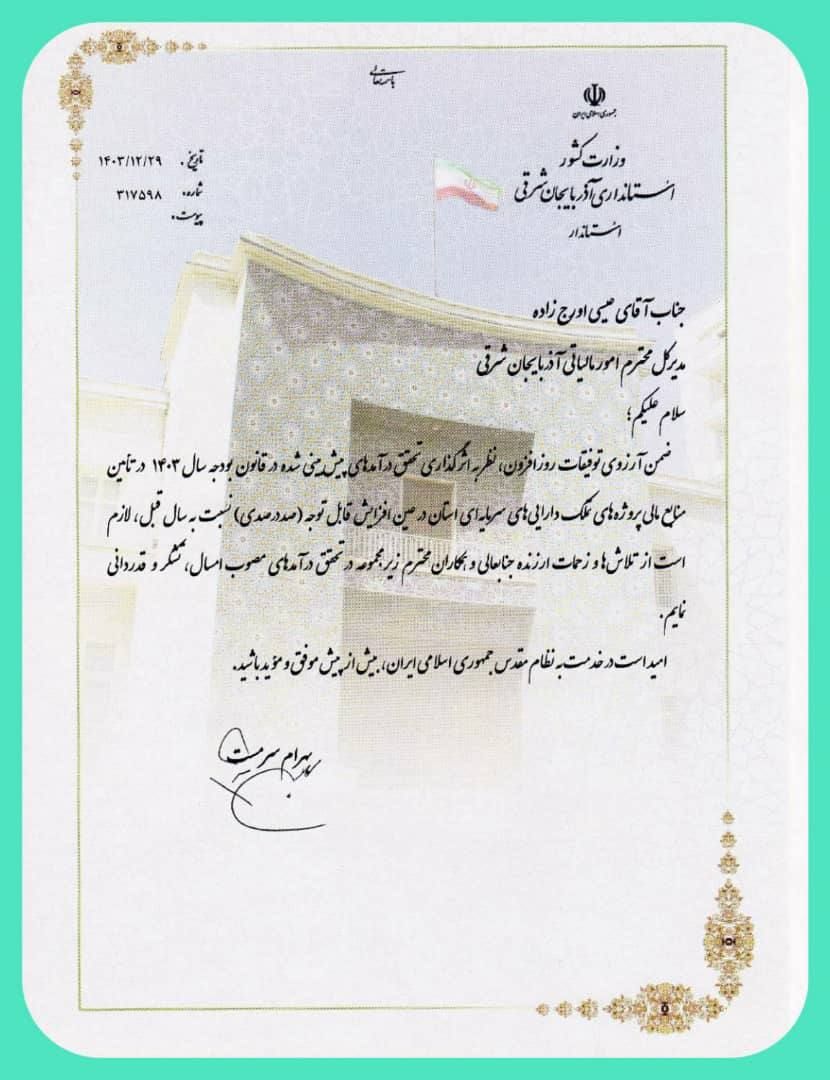 باسمه تعالی
جمهوری اسلامی ایران
وزارت کشور
استانداری آذربایجان شرقی
استاندار
تاریخ: ۱۴۰۳/۱۲/۲۹
شماره: ۳۱۷۵۹۸
پیوست:
جناب آقای عیسی اورج زاده
مدیرکل محترم امور مالیاتی آذربایجان شرقی
سلام علیکم؛
ضمن آرزوی توفیقات روزافزون، نظر به اثرگذاری تحقق درآمدهای پیش بینی شده در قانون بودجه سال ۱۴۰۳ در تأمین
منابع مالی پروژه های تملک دارایی های سرمایه ای استان در عین افزایش قابل توجه (صددرصدی) نسبت به سال قبل، لازم
است از تلاش ها و زحمات ارزنده جنابعالی و همکاران محترم زیرمجموعه در تحقق درآمدهای مصوب امسال، تشکر و قدردانی
نمایم.
امید است در خدمت به نظام مقدس جمهوری اسلامی ایران، بیش از پیش موفق و مؤید باشید.
بهرام سرمست